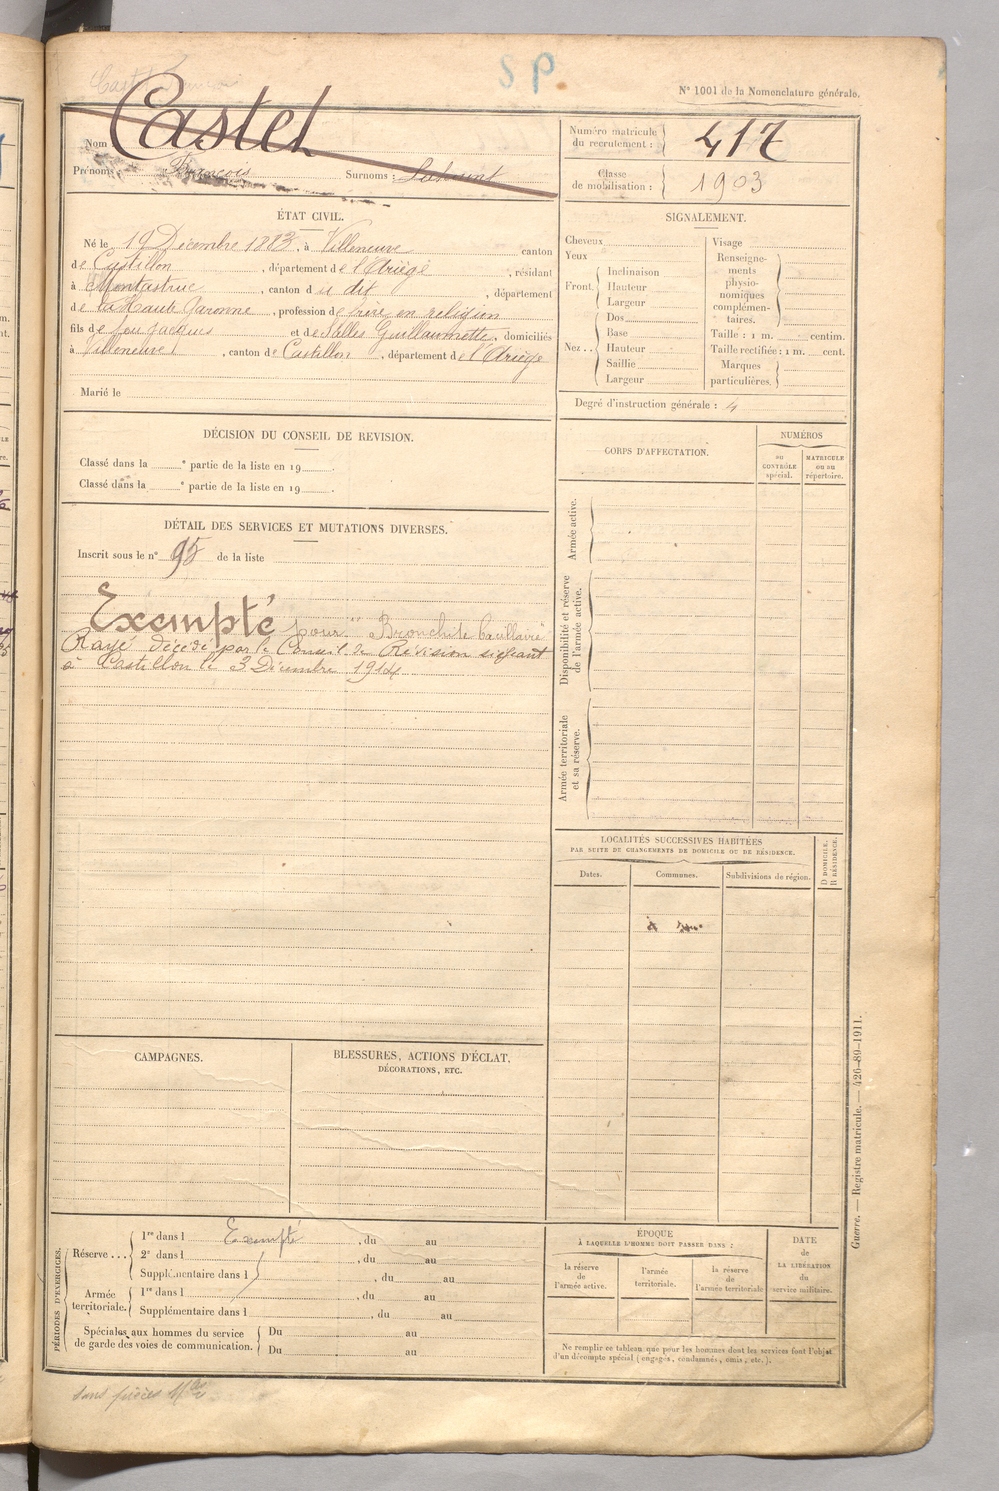 S P.
Castel François
N° 1001 de la Nomenclature générale.
Nom Castel
Prénoms François Surnoms :
Numéro matricule du recrutement : 417
Classe de mobilisation : 1903
ÉTAT CIVIL.
Né le 19 Décembre 1883, à Villeneuve canton
de Castillon, département de l'Ariège, résidant
à Montastruc, canton du dit, département
de la Haute Garonne, profession de frère en religion
fils de feu Jacques et de Salles Guillaumette, domiciliés
à Villeneuve, canton de Castillon, département de l'Ariège
Marié le
SIGNALEMENT.
Cheveux
Yeux
Front. Inclinaison
Hauteur
Largeur
Nez.. Dos
Base
Hauteur
Saillie
Largeur
Visage
Renseigne-
ments
physio-
nomiques
complémen-
taires.
Taille : 1 m. centim.
Taille rectifiée : 1 m. cent.
Marques
particulières.
Degré d'instruction générale : 4
DÉCISION DU CONSEIL DE REVISION.
Classé dans la e partie de la liste en 19 .
Classé dans la e partie de la liste en 19 .
DÉTAIL DES SERVICES ET MUTATIONS DIVERSES.
Inscrit sous le n° 95 de la liste
Exempté pour "Bronchite bacillaire"
Rayé décédé par le Conseil de Révision siégeant
à Castillon le 3 Décembre 1914
CORPS D'AFFECTATION.
NUMÉROS
au
CONTRÔLE
spécial.
MATRICULE
ou au
répertoire.
Armée active.
Disponibilité et réserve
de l'armée active.
Armée territoriale
et sa réserve.
LOCALITÉS SUCCESSIVES HABITÉES
PAR SUITE DE CHANGEMENTS DE DOMICILE OU DE RÉSIDENCE.
Dates.
Communes.
Subdivisions de région.
D DOMICILE.
R RÉSIDENCE.
CAMPAGNES.
BLESSURES, ACTIONS D'ÉCLAT,
DÉCORATIONS, ETC.
PÉRIODES D'EXERCICES.
Réserve ... 1re dans l Exempté, du au
2e dans l , du au
Supplémentaire dans l , du au
Armée
territoriale. 1re dans l , du au
Supplémentaire dans l , du au
Spéciales aux hommes du service
de garde des voies de communication. Du au
Du au
ÉPOQUE
À LAQUELLE L'HOMME DOIT PASSER DANS :
la réserve
de
l'armée active.
l'armée
territoriale.
la réserve
de
l'armée territoriale
DATE
de
LA LIBÉRATION
du
service militaire.
Ne remplir ce tableau que pour les hommes dont les services font l'objet
d'un décompte spécial (engagés, condamnés, omis, etc.).
Guerre. — Registre matricule. — 426-89-1911.
sans pièces